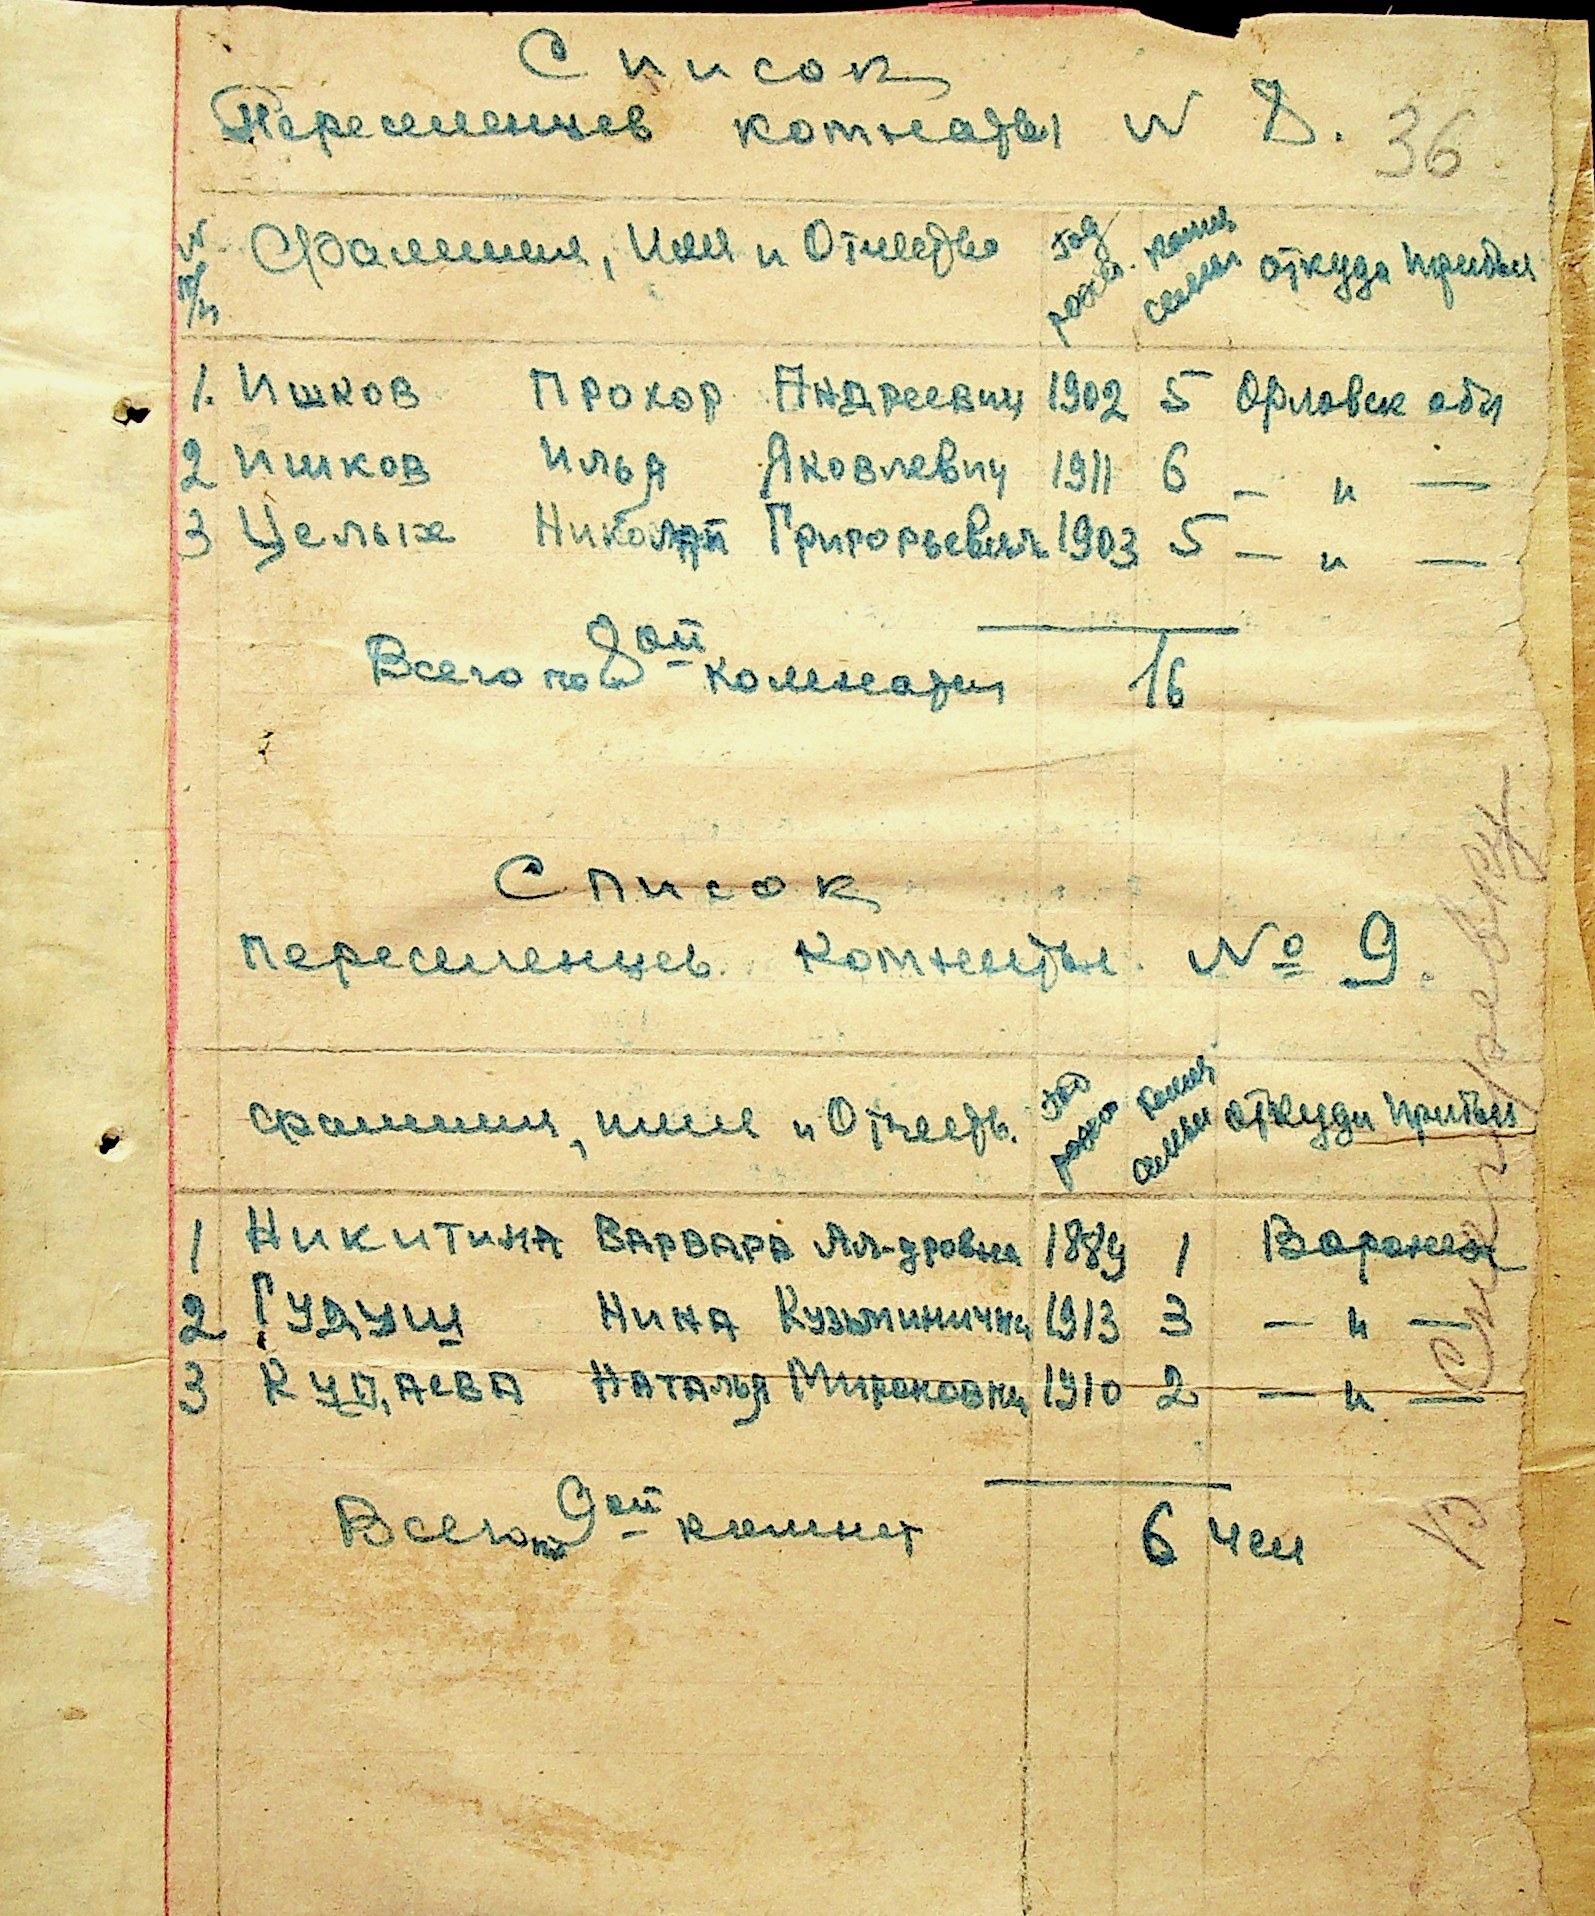 Список
Переселенцев комнаты N 8.
36
N п/п Фамилия, Имя и Отчество год рожд. колич семьи откуда прибыл
1. Ишков Прохор Андреевич 1902 5 Орловск обл
2 Ишков Илья Яковлевич 1911 6 — и —
3 Целых Николай Григорьевич 1903 5 — и —
Всего по 8ой комнаты 16
Список
переселенцев комнаты № 9.
фамилия, имя и Отчеств. год рожд колич семьи откуда прибыл
1 Никитина Варвара Ал-дровна 1889 1 Воронеж
2 Гудущ Нина Кузьминична 1913 3 — и —
3 Куцаева Наталья Мироновна 1910 2 — и —
Всего по 9ой комнат 6 чел